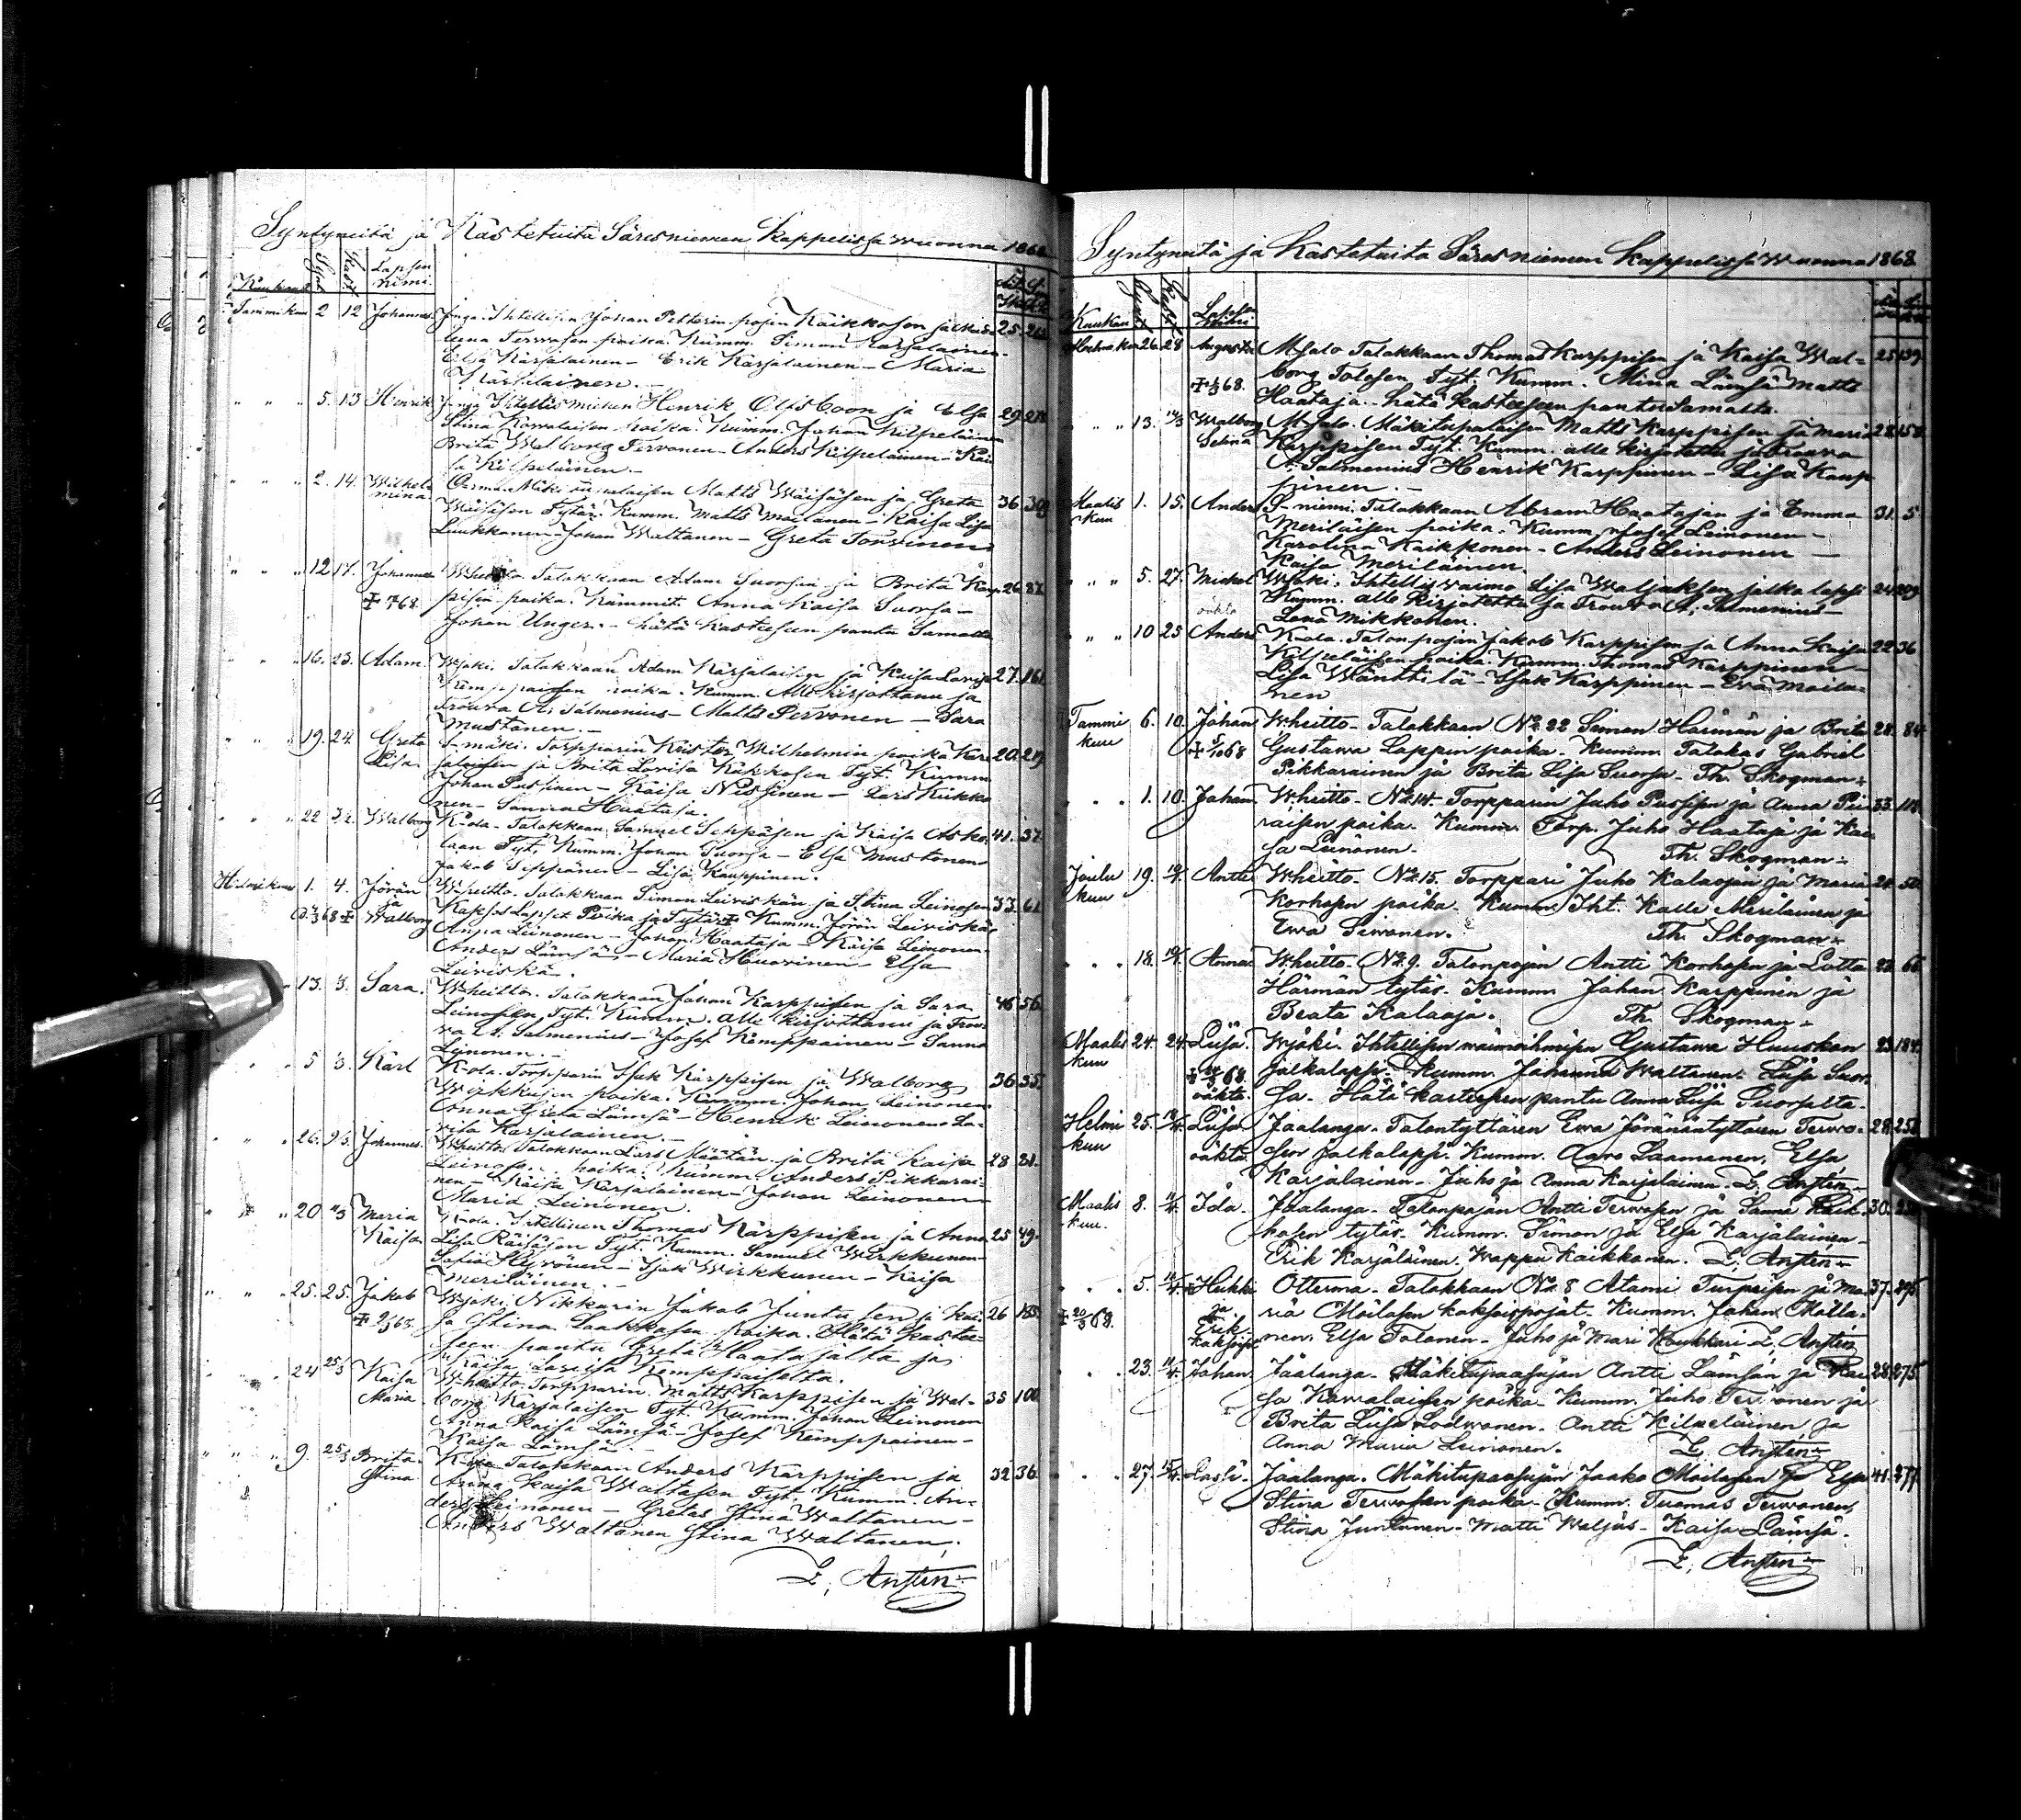 Syntyneitä ja Kastetuita Säresniemen Kappelissa wuonna 1868
Kuukausi Synt. Kast. Lapsen nimi.
Tammikuu 2 12 Johannes Itellisen Johan Petterin pojan Käikkosen ja Kris- 25.
tiina Terwosen poika. Kumm. Simon Karjalainen
Elsa Karjalainen - Erik Karjalainen - Maria
Karjalainen.
" " 5. 13 Henrik Henrik Olfsboon ja Elsa 29.
Stina Korwalaisen poika. Kumm. Johan Kilpeläinen
Brita Walborg Terwonen - Anders Kilpeläinen - Kai
sa Kilpeläinen -
" " 2. 14. Wilhel mina Matts Wäisäsen ja Greta 36.
Wäisäsen Tytär. Kumm. Matts Moilanen - Kaisa Lisa
Luukkonen - Johan Waltanen - Greta Torwinen
" " 12 17. Johannes Talokkaan Adam Suorsan ja Brita Karp- 26.87.
pisen poika. Kummit. Anna Kaisa Suorsa -
Johan Unger. - hätä kasteeseen pantu Samalta
" 16. 23. Adam. Wjoki. Talokkaan Adam Karjalaisen ja Kaisa Lovisa 27.161
Kemppaisen poika. Kumm. Allekirjottanu ja
Frouva A. Salmenius - Matts Terwonen - Sara
Mustonen. -
" 19. 24. Greta Lisa Torpparin Krister Wilhelmin poika Kar- 20.
jalaisen ja Brita Lovisa Kükkosen Tyt. Kumm
Johan Pussinen - Kaisa Nissinen - Lars Kükko
nen - Sanna Haataja.
" 22 Walborg Talokkaan Samuel Seppäsen ja Kaisa 41. 37.
Tyt. Kumm. Johan Suorsa - Elsa Mustonen
Jakob Seppänen - Lisa Kauppinen.
Helmikuu 1. 4. Jöran ja Walborg Wheitto. Talokkaan Simon Leiviskän ja Stina Leinosen 33.61
Kaksos Lapset Poika ja Tytär Kumm. Jöran Leiviskä
Anna Leinonen - Johan Haataja - Kaisa Leinonen.
Anders Lämsä - Maria Huovinen - Elsa
Leiviskä.
" 13. 3. Sara. Wheitto. Talokkaan Johan Karppisen ja Sara 46 56
Leinosen Tyt. Kumm. allekirjottanu ja Frou-
va A. Salmenius - Josef Kemppainen - Sanna
Leinonen. -
" 5 3. Karl Torpparin Isak Karppisen ja Walborg 36 35.
Wirkkusen poika. Kumm. Johan Leinonen
Anna Greta Lämsä - Henrik Leinonen Lo-
visa Karjalainen. -
" " 26. Johannes. Wheitto. Talokkaan Lars Määtän ja Brita Kaisa 28 81.
Leinosen poika. Kumm. Anders Pikkarai-
nen - Kaisa Karjalainen - Johan Leinonen
Maria Leinonen.
" " 20 Maria Kaisa Itellinen Thomas Karppisen ja Anna 25 49.
Lisa Räisäsen Tyt. Kumm. Samuel Wirkkunen
Sofia Hyvönen - Isak Wirkkunen - Kaisa
Meriläinen. -
" " 25. 25. Jakob Wjoki. Nikkarin Jakob Juntusen ja Kai- 26
sa Stina Laakkosen poika. Hätä kastee-
seen pantu Greta Haatajalta ja
Kaisa Lovisa Kemppaiselta.
" 24 25/3 Kaisa Maria Wheitto. Torpparin Matts Karppisen ja Wal- 35 100
borg Karjalaisen Tyt. Kumm. Johan Leinonen
Anna Kaisa Lämsä - Josef Kemppainen -
Kaisa Lämsä.
" " 9. 25/3 Brita Stina Talokkaan Anders Karppisen ja 32 36.
Anna Kaisa Waltasen Tyt. Kumm. An-
ders Leinonen - Gretas Stina Waltanen -
Anders Waltanen Stina Waltanen.
L. Ansten
Syntyneitä ja Kastetuita Säresniemen Kappelissa Wuonna 1868
Kuukau Synt. Kast. Lapsen nimi
Helmikuu 26. 28 Augusta Msalo Talokkaan Thomas Karppisen ja Kaisa Wal- 25 139
borg Tolosen Tyt. Kumm. Mina Lämsä Matts
Haataja - hätä kasteeseen pantu Samalta.
" " 13. Walborg Selina Msalo. Mäkitupalaisen Matts Karppisen ja Maria 28.158
Karppisen Tyt. Kumm. alle kirjotettu ja Frouva
A. Salmenius Henrik Karppinen - Lisa Karp
pinen. -
Maalis kuu 1. 15. Anders S-niemi. Talokkaan Abram Haatajan ja Emma 31. 5.
Meriläisen poika. Kumm. Josef Leinonen -
Karolina Kaikkonen - Anders Leinonen -
Kaisa Meriläinen.
" " 5. 27. Michel Wjoki. Ihtellis waimo Lisa Waljuksen jalka lapsi 24
Kumm. alle kirjotettu ja Frouva A. Salmenius -
Lena Mikkonen.
" " 10 25 Anders Talonpojan Jakob Karppisen ja Anna Kaisa 22 36
Kilpeläisen poika. Kumm. Thomas Karppinen
Lisa Wänttilä - Isak Karppinen - Eva Moila-
nen
Tammi kuu 6. 10. Johan Wheitto - Talokkaan No 22 Simon Härmän ja Brita 28. 84.
Gustawa Lappin poika. Kumm. Talokas Gabriel
Pikkarainen ja Brita Lisa Suorsa. Th. Skogman.
" " 1. 10. Johan Wheitto - No 14 Torpparin Juho Pussisen ja Anna Pii- 33. 118.
raisen poika. Kumm. Torp. Juho Haataja ja Kai
sa Leinonen. Th. Skogman.
Joulu kuu 19. Antti Wheitto. No 15. Torppari Juho Kalaojan ja Maria 24. 50.
Korhosen poika. Kumm. Iht. Kalle Meriläinen ja
Ewa Siwonen. Th. Skogman.
" " 18. Anna Wheitto - No 9. Talonpojan Antti Korhosen ja Lotta 23. 66.
Härmän tytär. Kumm Johan Karppinen ja
Beata Kalaoja. Th. Skogman.
Maalis kuu 24. 24. Liisa Wjoki. Ihtellisen waimoihmisen Gustawa Huuskon 23.184.
jalkalapsi. Kumm. Johanna Waltanen. Liisa Suor
sa. Hätä kasteeseen pantu Anna Liisa Suorsalta.
Helmi kuu 25. Liisa Jaalanga. Talontyttären Ewa Jöranantyttären Terwo- 28.
sen Jalkalapsi. Kumm. Aaro Laamanen, Elsa
Karjalainen. Juho ja Anna Karjalainen. L. Ansten
Maalis kuu. 8. Ida. Jaalanga. Talonpojan Antti Terwosen ja Sanna Kaik- 30.
kosen tytär. Kumm. Simon ja Elsa Karjalainen -
Erik Karjalainen. Wappu Kaikkonen. L. Ansten
" " 5. Heikki ja Erik kaksoiset Otterma. Talokkaan No 8 Atami Turpeisen ja Ma- 37.
ria Moilasen kaksoispojat. Kumm. Johan Moila-
nen Elsa Tolonen. Juho ja Mari Koukkari L. Ansten
" " 23. Johan Jaalanga. Mäkitupaasujan Antti Lämsän ja Kai 28.275
sa Karwalaisen poika. Kumm. Juho Terwonen ja
Brita Liisa Lodwonen. Antti Kilpeläinen ja
Anna Maria Leinonen. L. Ansten
" " 27. Lassi. Jaalanga. Mäkitupaasujan Jaako Moilasen ja Elsa 41.277
Stina Terwosen poika. Kumm. Tuomas Terwonen,
Stina Juntunen. Matti Waljus. Kaisa Lämsä.
L. Ansten